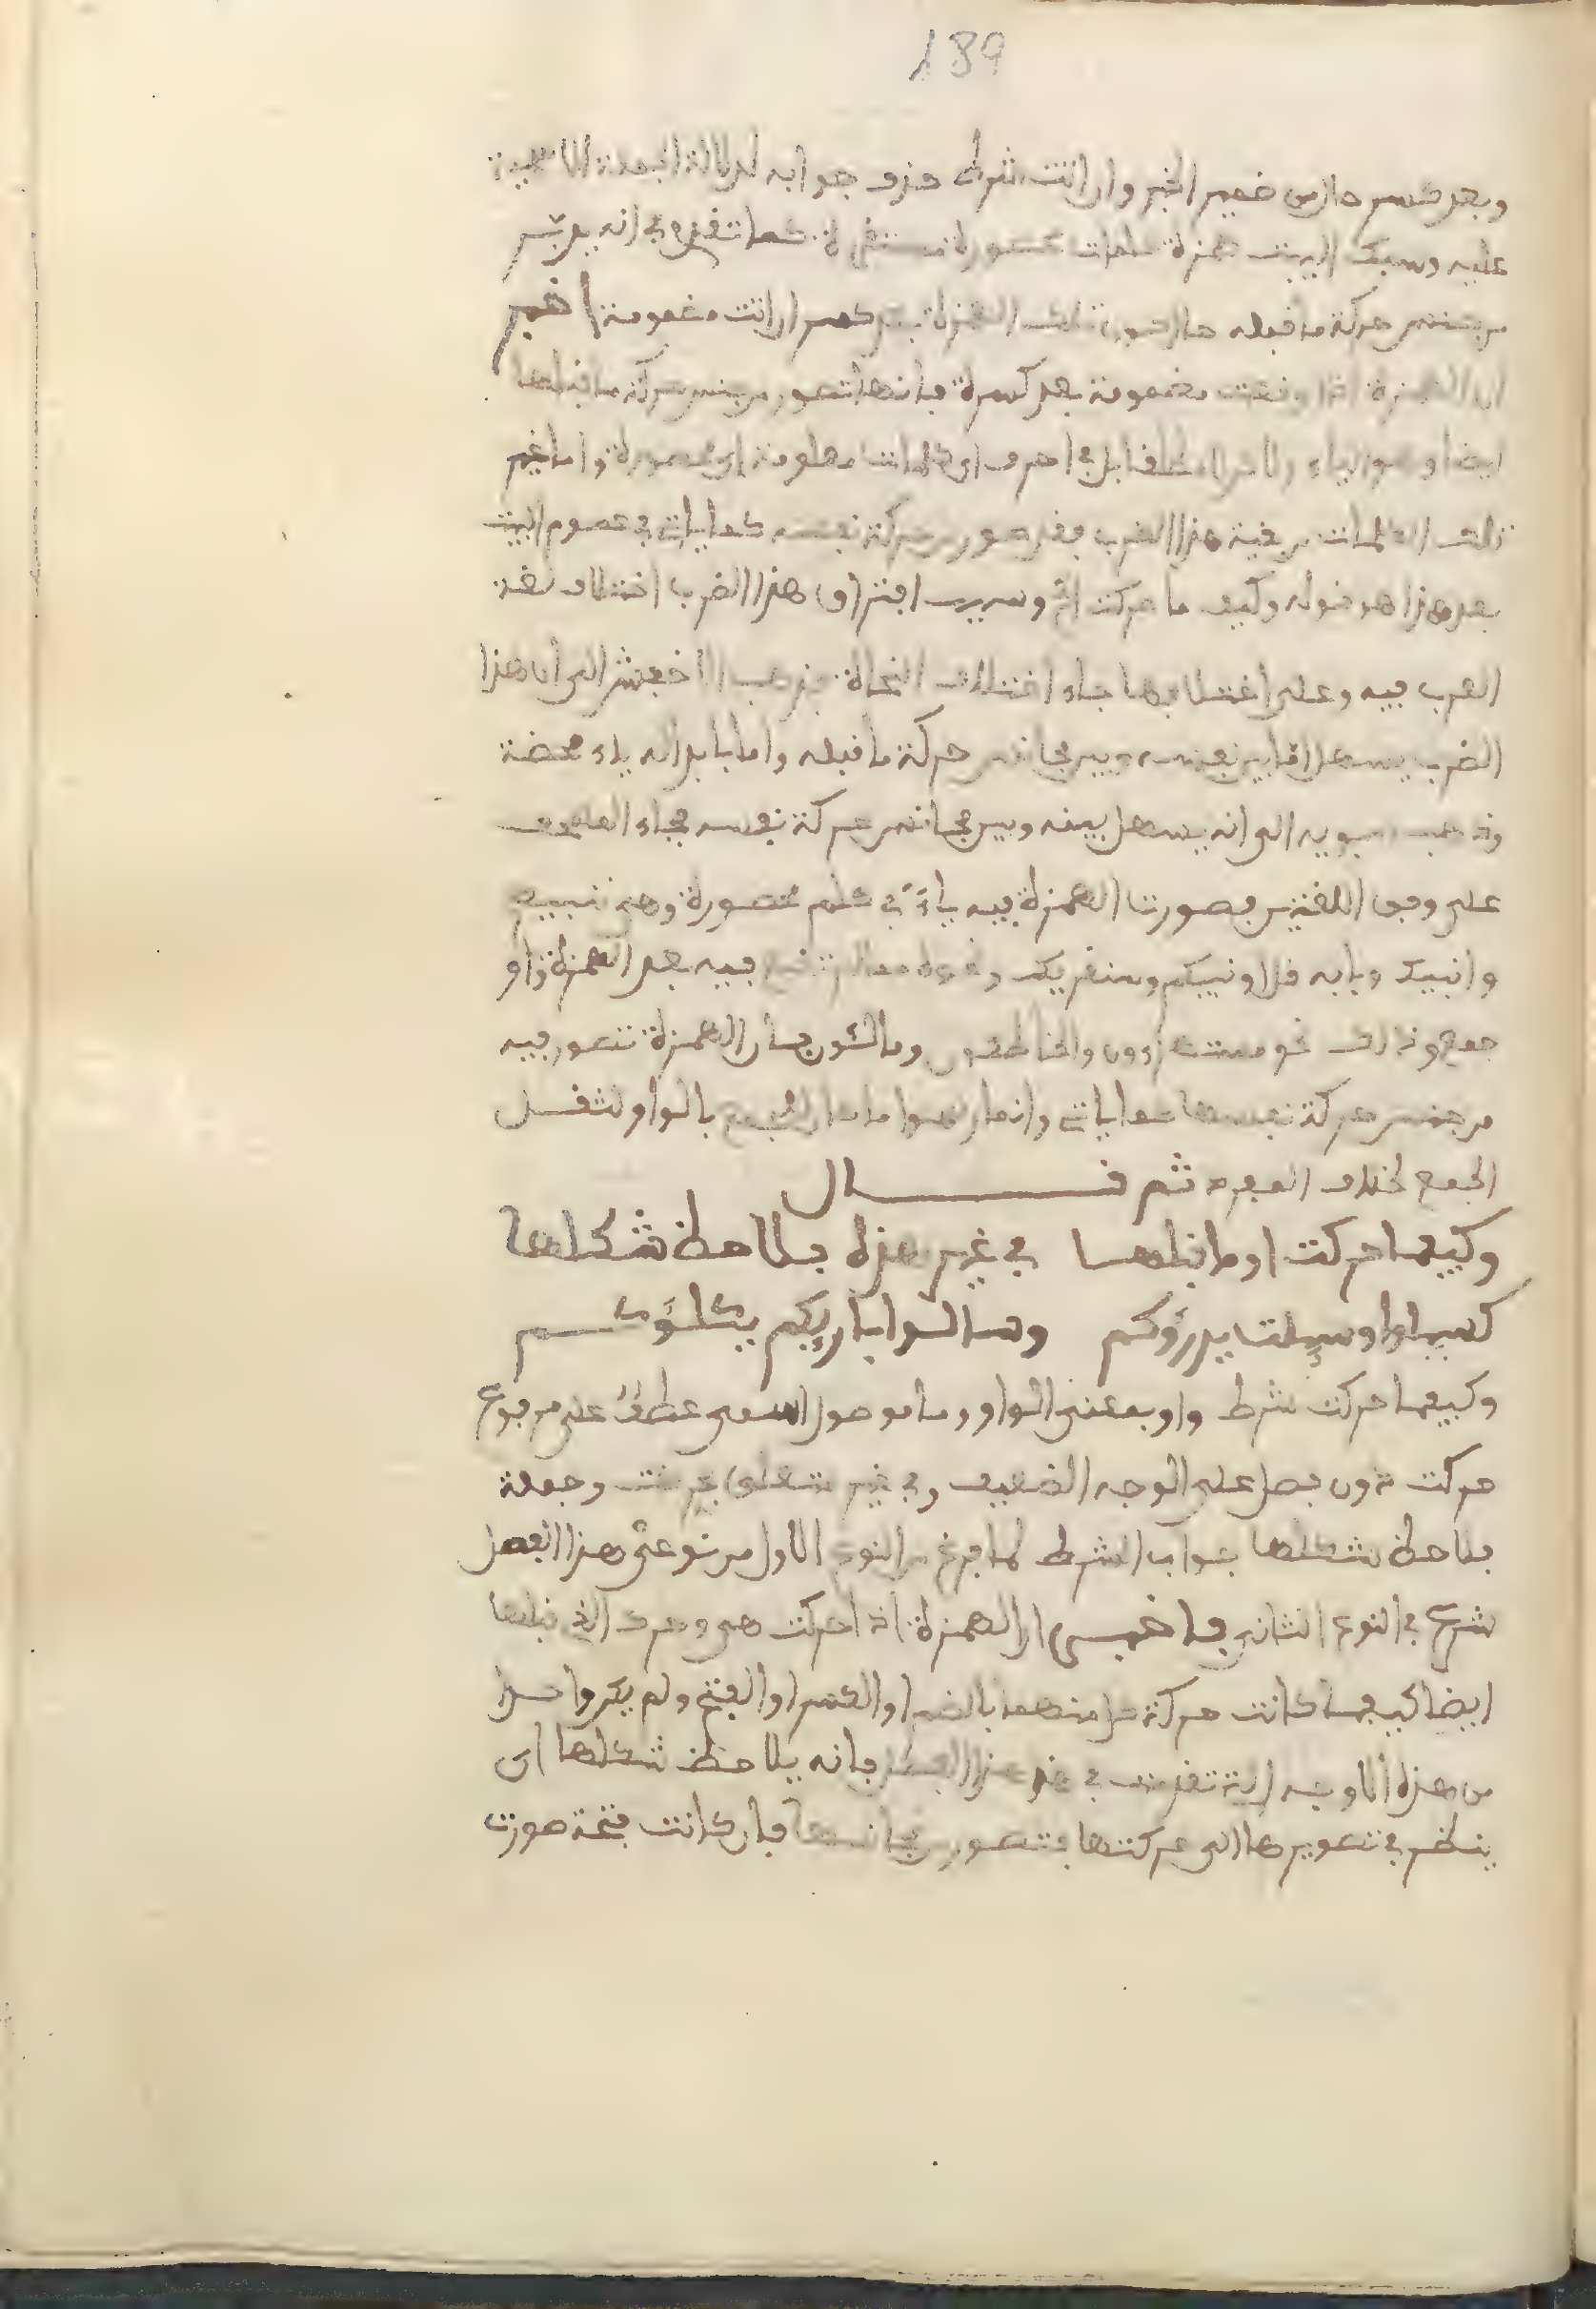 189
وبعد كسر حال من ضمير الخبر وان اتت شرط حذف جوابه لدلالة الجملة الاسمية
عليه وسبك البيت همزة كلمات مصورة كما تقدم في انه يدبر
من جنس حركة ما قبله حال كون تلك الهمزة بعد كسر ان اتت مضمومة اخبر
ان الهمزة اذا وقعت مضمومة بعد كسرة فانها تصور من جنس حركة ما قبلها
ايضا وهو الياء لا مطلقا بل في احرف اي كلمات معلومة اي محصورة واما غير
تلك الكلمات من بقية هذا الضرب فقد صور من حركة نفسه كما ياتي في عموم البيت
بعد هذا هو قوله وكيف ما حركت الخ وسبب افتراق هذا الضرب اختلاف لغة
العرب فيه وعلى اختلافها جاء اختلاف النحاة فذهب الاخفش الى ان هذا
الضرب يسهل اما بين نفسه وبين مجانس حركة ما قبله واما بابداله ياء محضة
وذهب سيبويه الى انه يسهل بينه وبين مجانس حركة نفسه فجاء المصحف
على وفق اللغتين فصورت الهمزة فيه ياء في كلم محصورة وهي ننبيهم
وانبيك وبابه قل اونبيكم وسنقريك ونحوه مما لم تقع فيه بعد الهمزة واو
جمع ونحو ذلك نحو مستهزءون والخاطئون ومالئون فان الهمزة تصور فيه
من جنس حركة نفسها كما ياتي وانما رسموا ما كان للجمع بالواو لثقل
الجمع بخلاف المفرد ثم قال
وكيفما حركت او ما قبلها في غير هذه فلاحظ شكلها
كسيلوا وسيلت يدرؤكم وسالوا باريكم يكلؤكم
وكيفما حركت شرط واو بمعنى الواو وما موصول اسمي عطف على مرفوع
حركت دون فصل على الوجه الضعيف وفي غير متعلق بحركت وجملة
فلاحظ شكلها جواب الشرط لما فرغ من النوع الاول من نوعي هذا الفصل
شرع في النوع الثاني فاخبر ان الهمزة اذا حركت هي وحرك الذي قبلها
ايضا كيفما كانت حركة كل منهما بالضم او الكسر او الفتح ولم يكن واحدا
من هذه الاوجه التي تقدمت في غير هذا الفصل فانه يلاحظ شكلها اي
ينظر في تصويرها الى حركتها فتصور من مجانسها فان كانت فتحة صورت